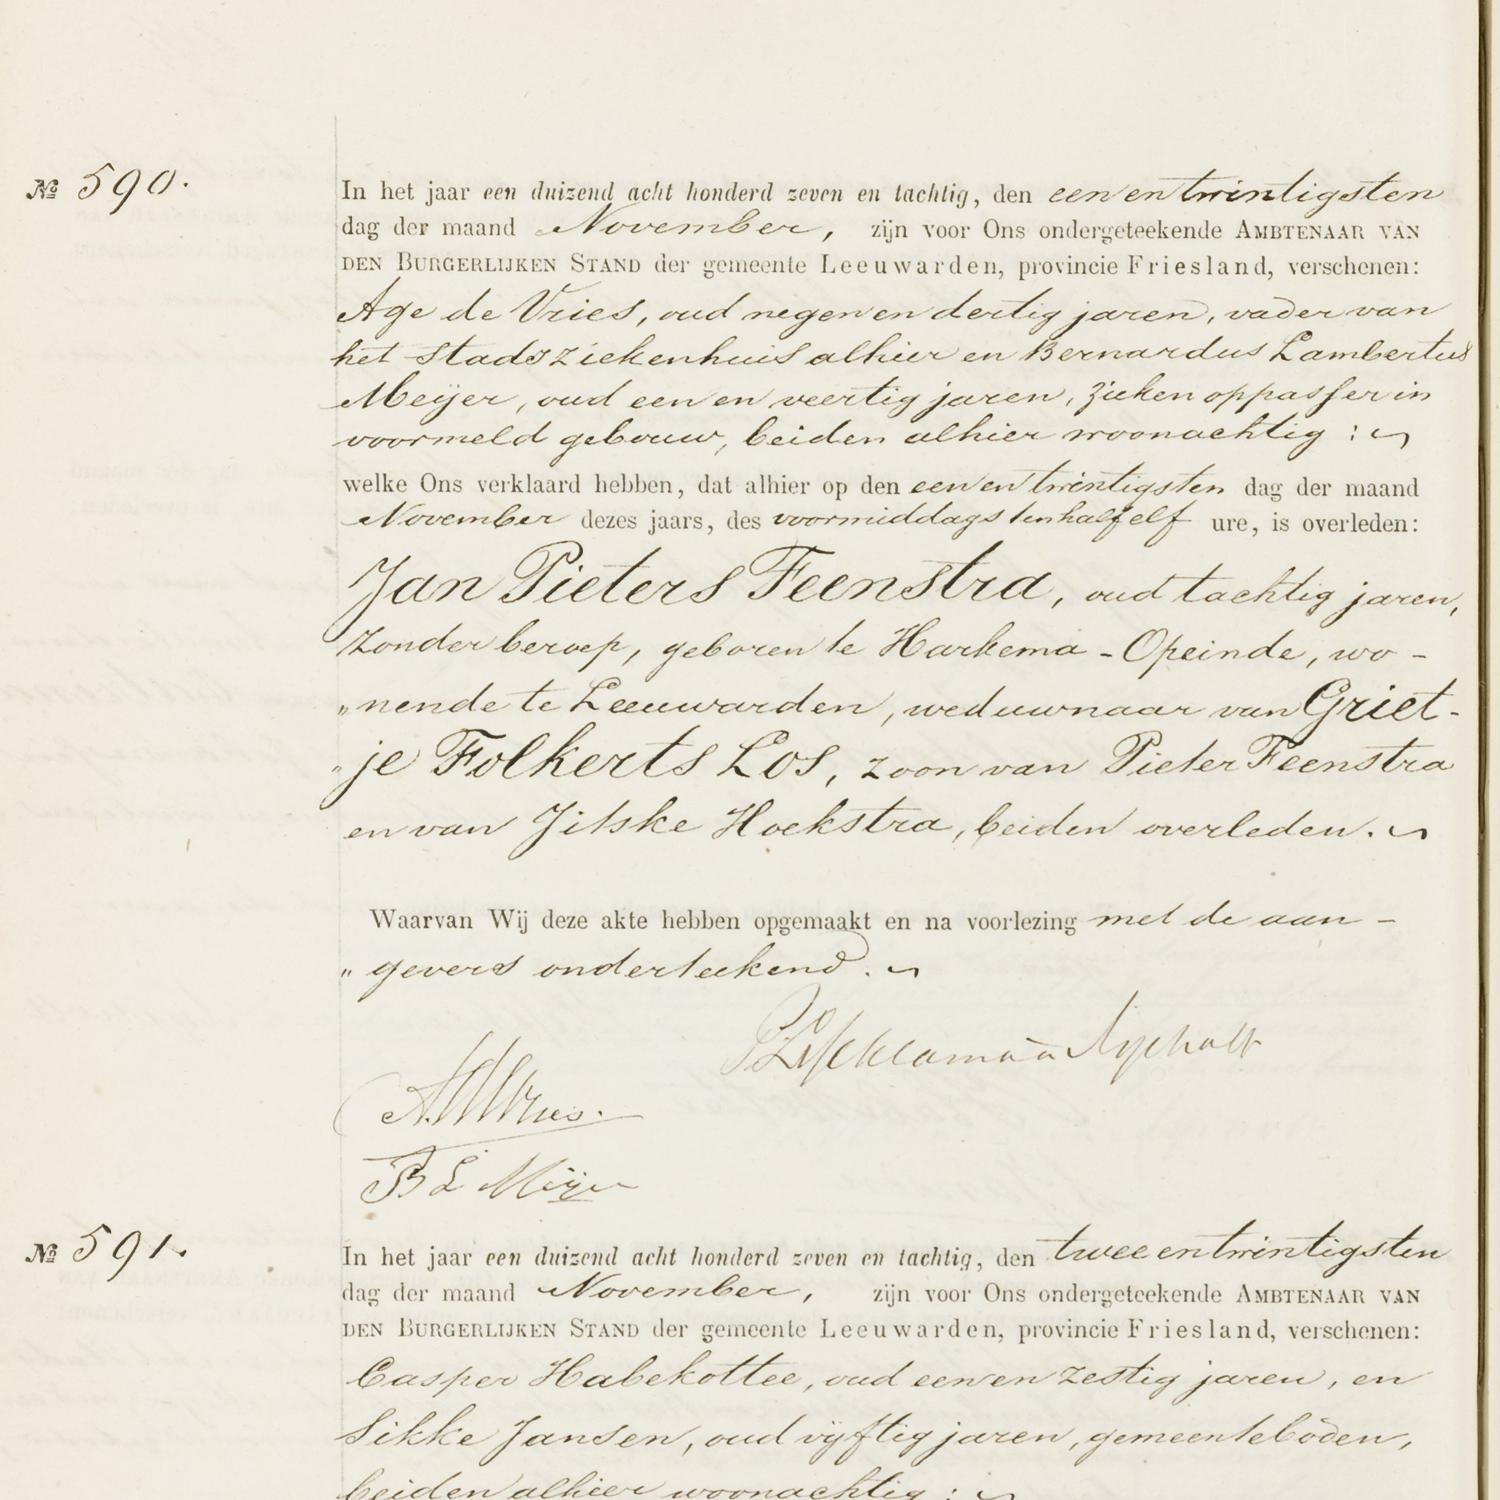 No 590.
In het jaar een duizend acht honderd zeven en tachtig, den een en twintigsten
dag der maand November, zijn voor Ons ondergeteekende AMBTENAAR VAN
DEN BURGERLIJKEN STAND der gemeente Leeuwarden, provincie Friesland, verschenen:
Age de Vries, oud negen en dertig jaren, vader van
het stadsziekenhuis alhier en Bernardus Lambertus
Meijer, oud een en veertig jaren, ziekenoppasser in
voormeld gebouw, beiden alhier woonachtig :
welke Ons verklaard hebben, dat alhier op den een en twintigsten dag der maand
November dezes jaars, des voormiddags ten half elf ure, is overleden:
Jan Pieters Feenstra, oud tachtig jaren,
zonder beroep, geboren te Harkema-Opeinde, wo-
„nende te Leeuwarden, weduwnaar van Griet-
„je Folkerts Los, zoon van Pieter Feenstra
en van Jitske Hoekstra, beiden overleden.
Waarvan Wij deze akte hebben opgemaakt en na voorlezing met de aan-
„gevers onderteekend.
A. d Vries.
B L Meijer
No 591.
In het jaar een duizend acht honderd zeven en tachtig, den twee en twintigsten
dag der maand November, zijn voor Ons ondergeteekende AMBTENAAR VAN
DEN BURGERLIJKEN STAND der gemeente Leeuwarden, provincie Friesland, verschenen:
Casper Habekottee, oud een en zestig jaren, en
Sikke Jansen, oud vijftig jaren, gemeenteboden,
beiden alhier woonachtig :